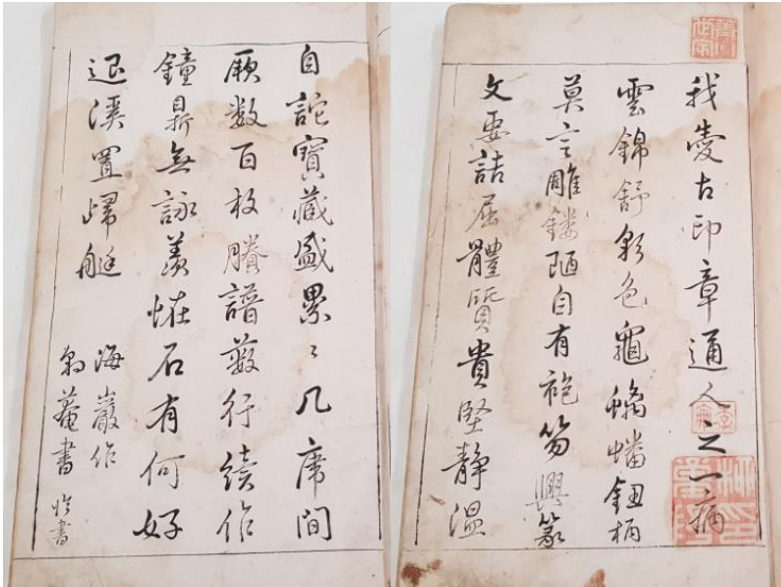 我愛古印章通人之一病
雲錦舒彩色龜螭蟠鈕柄
莫言雕鏤陋自有袍笏興篆
文要詰屈體質貴堅靜溫
自詫寶藏盛累々几席間
願数百枚賸譜蔹行續作
鐘鼎無詠羨怪石有何好
退溪置歸艇
海巖作
翁菴書